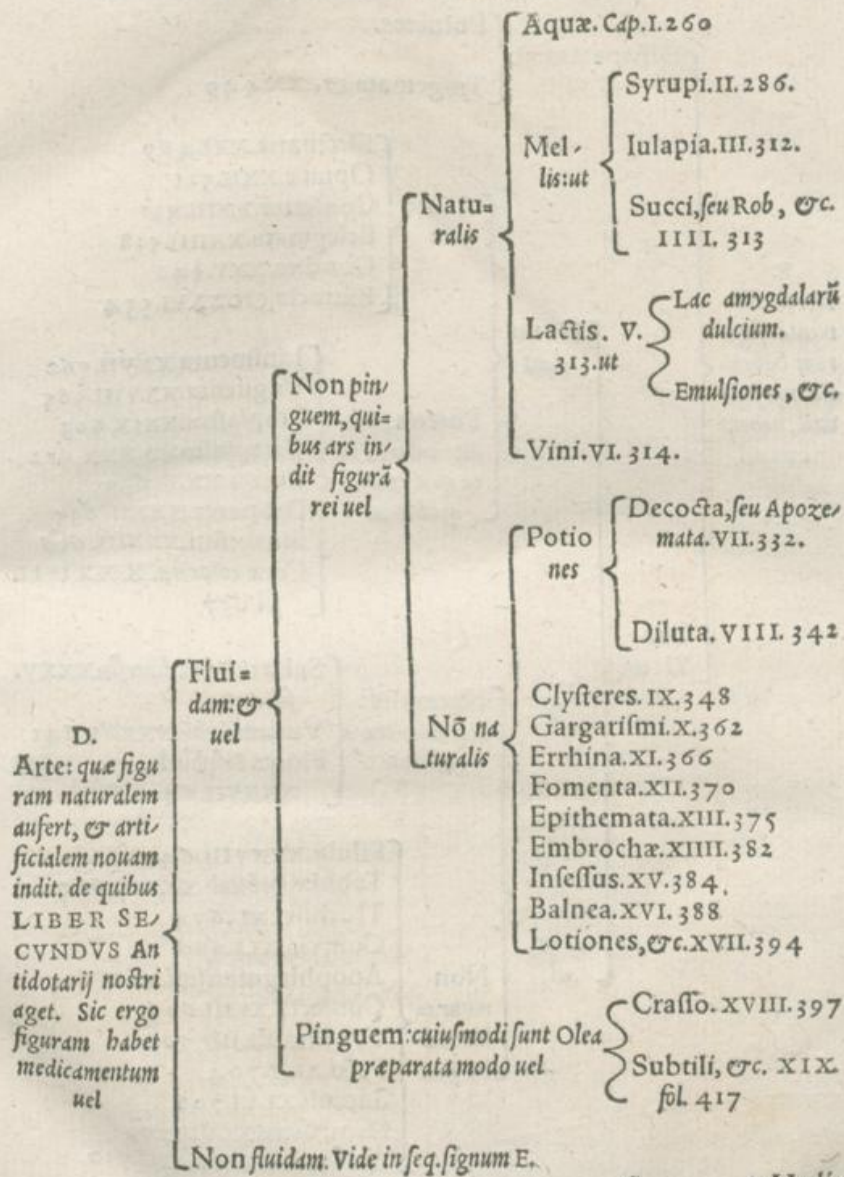 D.
Arte: quæ figu
ram naturalem
aufert, & arti-
ficialem nouam
indit. de quibus
LIBER SE-
CVNDVS An
tidotarij nostri
aget. Sic ergo
figuram habet
medicamentum
uel
Flui=
dam: &
uel
Non pin-
guem, qui=
bus ars in-
dit figurā
rei uel
Natu=
ralis
Aquæ. Cap. I. 260
Mel-
lis: ut
Syrupi. II. 286.
Iulapia. III. 312.
Succi, seu Rob, &c.
IIII. 313
Lactis. V.
313. ut
Lac amygdalarū
dulcium.
Emulsiones, &c.
Vini. VI. 314.
Nō na
turalis
Potio
nes
Decocta, seu Apoze-
mata. VII. 332.
Diluta. VIII. 342
Clysteres. IX. 348
Gargarismi. X. 362
Errhina. XI. 366
Fomenta. XII. 370
Epithemata. XIII. 375
Embrochæ. XIIII. 382
Insessus. XV. 384.
Balnea. XVI. 388
Lotiones, &c. XVII. 394
Pinguem: cuiusmodi sunt Olea
præparata modo uel
Crasso. XVIII. 397
Subtili, &c. XIX.
fol. 417
Non fluidam. Vide in seq. signum E.